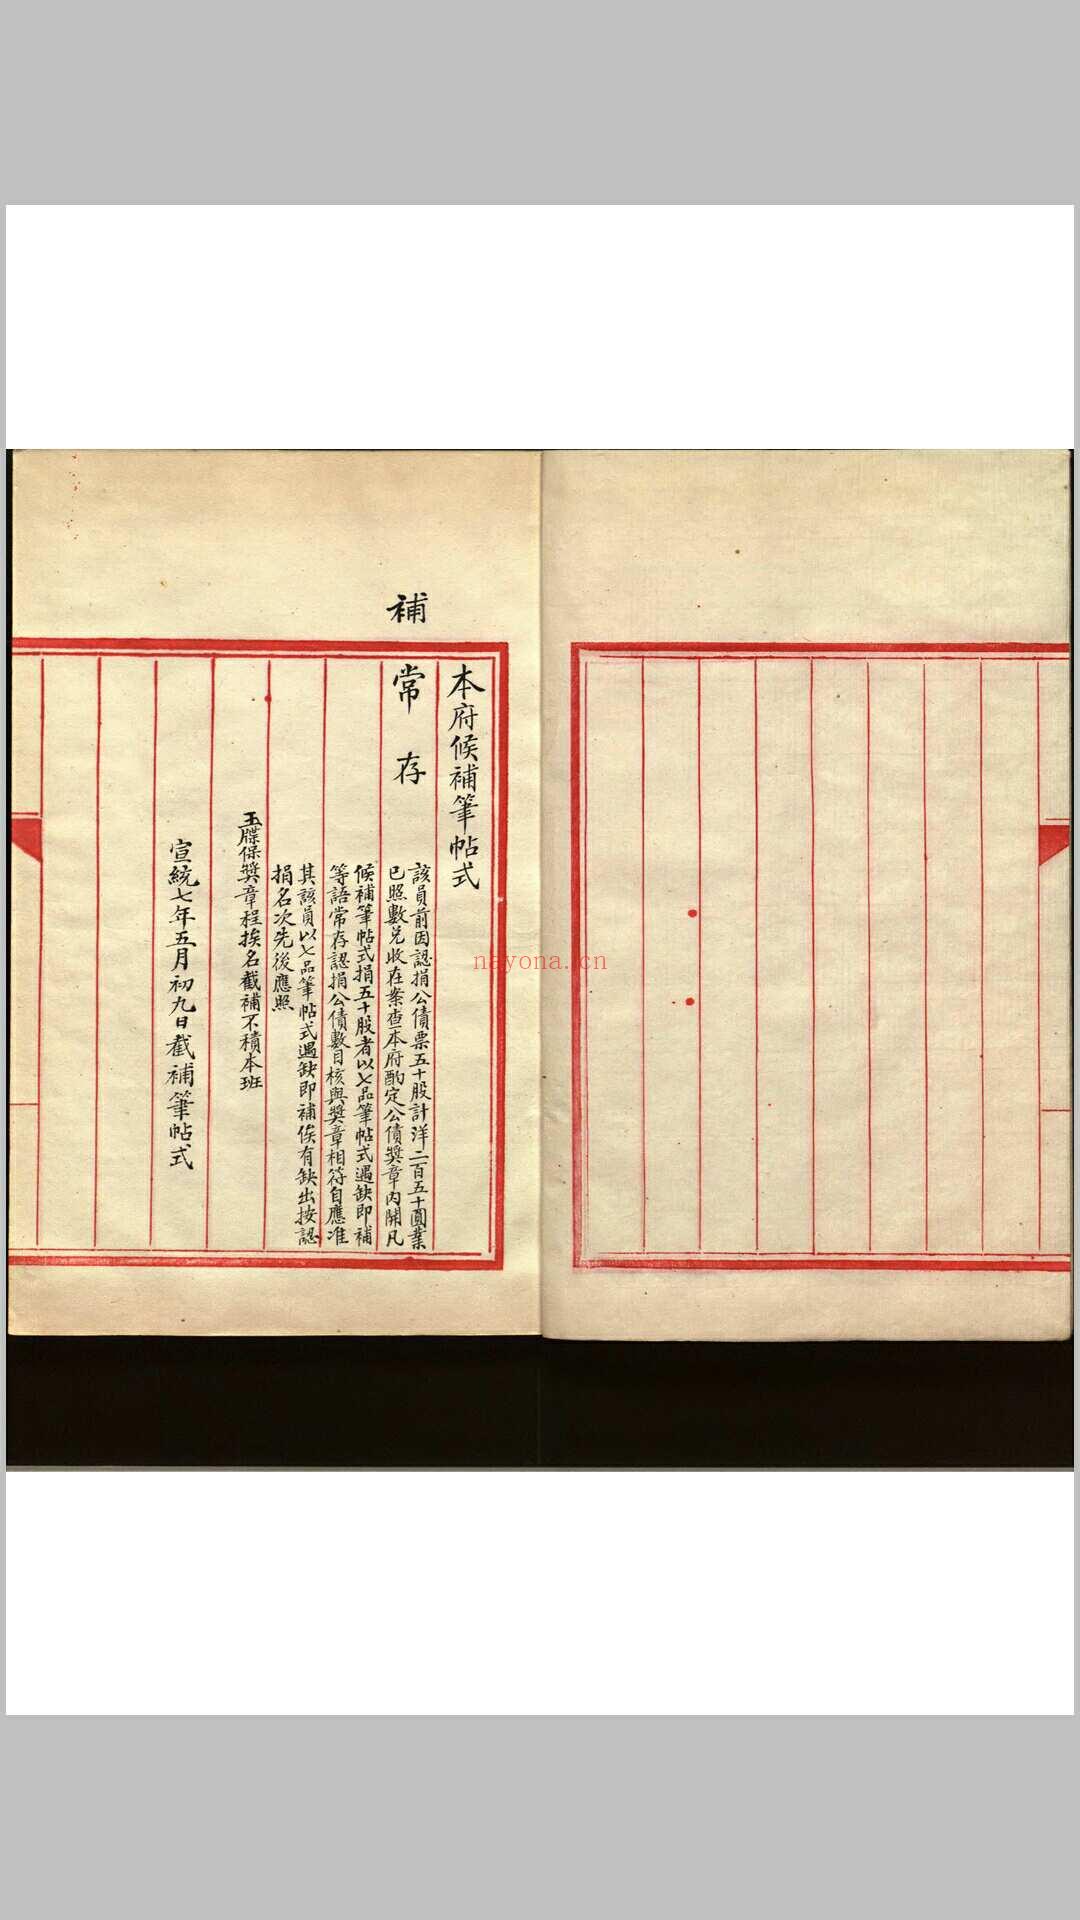 本府候補筆帖式
補
常 存
該員前因認捐公債票五十股計洋二百五十圓業
已照數兑收在案查本府酌定公債獎章内開凡
候補筆帖式捐五十股者以七品筆帖式遇缺即補
等語常存認捐公債數目核與獎章相符自應准
其該員以七品筆帖式遇缺即補俟有缺出按認
捐名次先後應照
玉牒保獎章程挨名截補不積本班
宣統七年五月初九日截補筆帖式
nayona.cn